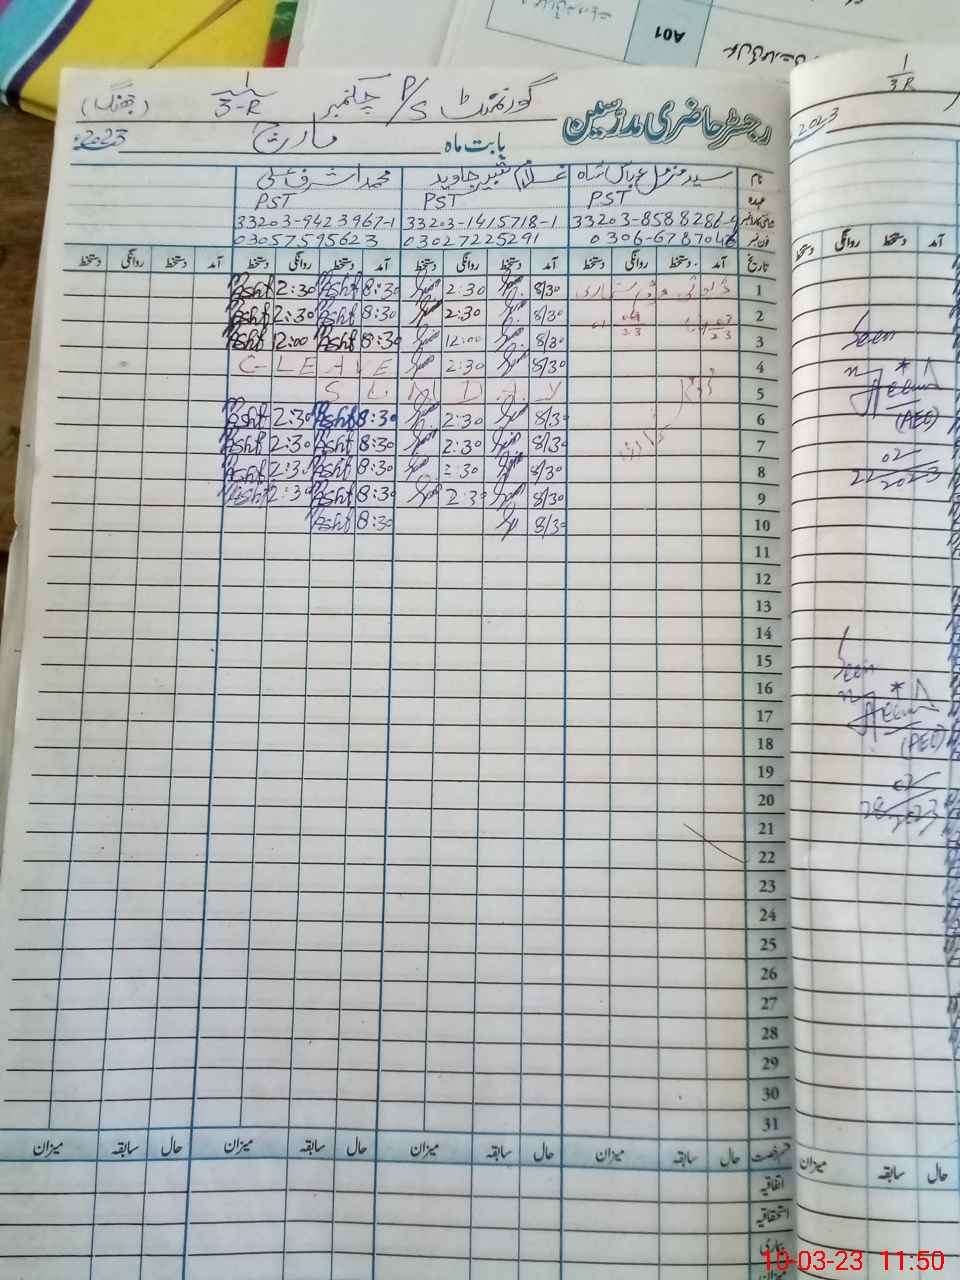 A01
گورنمنٹ P/S چکنمبر 1/3-R (جھنگ)
رجسٹر حاضری مدرسین
بابت ماہ مارچ 2023ء
نام سید مزمل عباس شاہ غلام شبیر جاوید محمد اشرف علی
عہدہ PST PST PST
شناختی کارڈ نمبر 33203-1415718-1 33203-9423967-1
فون نمبر 03027225291 03057595623
تاریخ آمد دستخط روانگی دستخط آمد دستخط روانگی دستخط آمد دستخط روانگی دستخط آمد دستخط روانگی دستخط
1 8/30 2:30 8:30 Ashf 2:30 Ashf
2 8/30 2:30 8:30 Ashf 2:30 Ashf
3 8/30 12:00 8:30 Ashf 12:00 Ashf
4 8/30 2:30 C-LEAVE
5 SUNDAY
6 8/30 2:30 8:30 Ashf 2:30 Ashf
7 8/30 2:30 8:30 Ashf 2:30 Ashf
8 8/30 2:30 8:30 Ashf 2:3 Ashf
9 8/30 2:30 8:30 Ashf 2:30 Ashf
10 8/30 8:30 Ashf
11
12
13
14
15
16
17
18
19
20
21
22
23
24
25
26
27
28
29
30
31
قسم رخصت حال سابقہ میزان حال سابقہ میزان حال سابقہ میزان حال سابقہ میزان
اتفاقیہ
استحقاقیہ
بیماری
میزان
1/3R
2023
آمد دستخط روانگی دستخط
Seen
(AEO)
22/02/2023
Seen
(AEO)
28/02/2023
حال سابقہ میزان
10-03-23 11:50